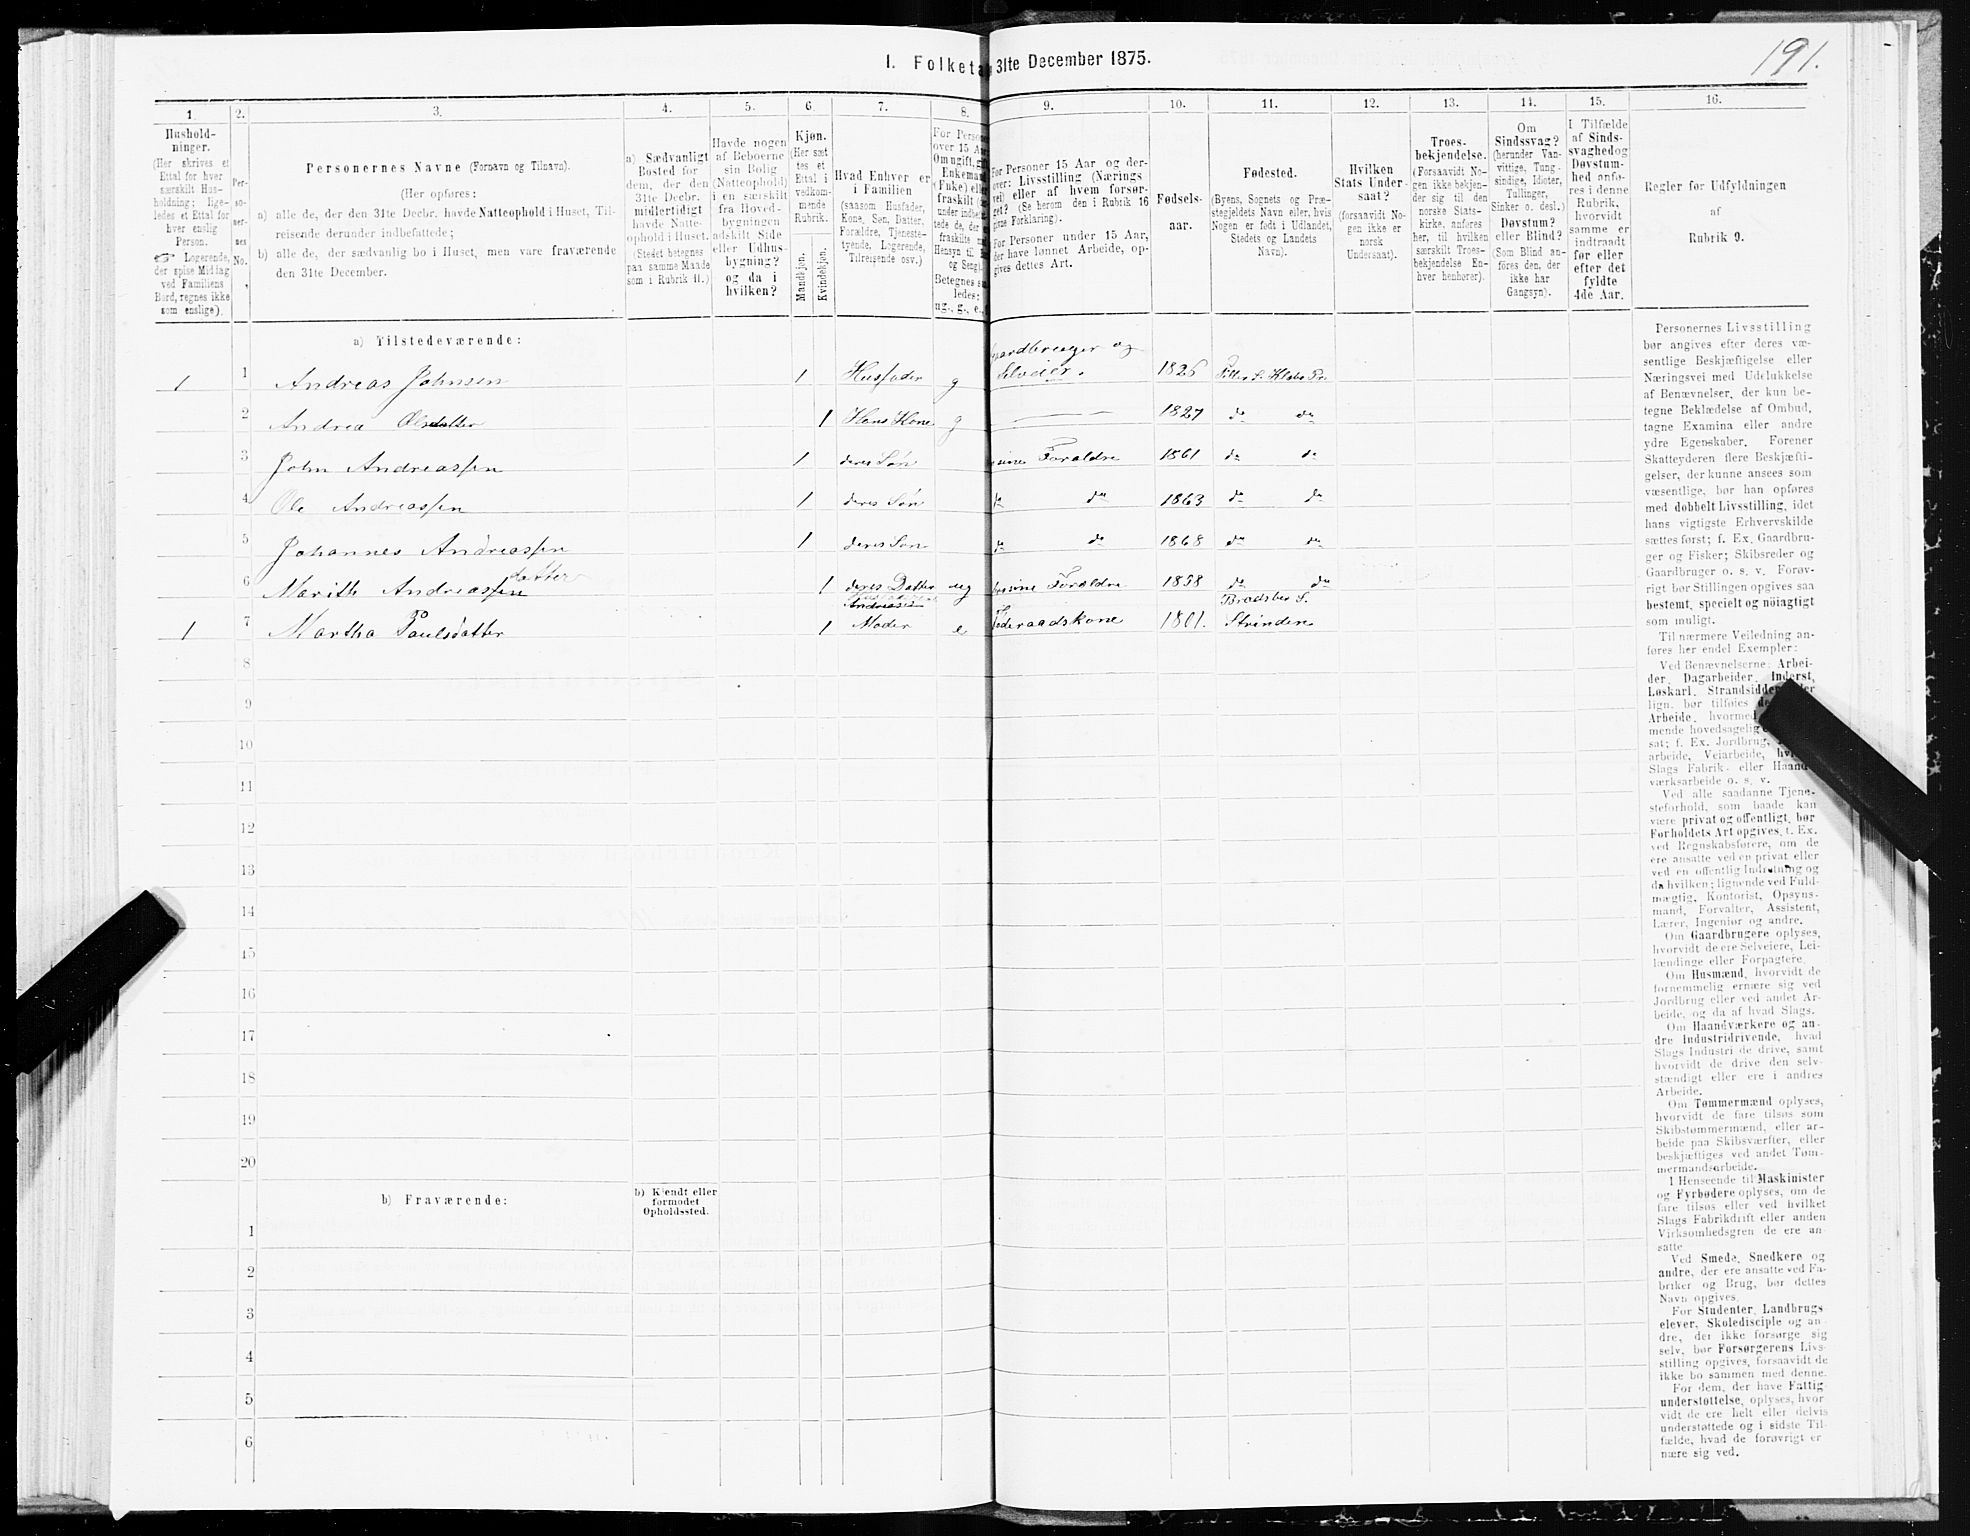 191.
I. Folketa 31te December 1875.
1. 2. 3. 4. 5. 6. 7. 8. 9. 10. 11. 12. 13. 14. 15. 16.
Hushold-
ninger.
(Her skrives et
Ettal for hver
særskilt Hus-
holdning; lige-
ledes et Ettal for
hver enslig
Person.
☞ Logerende,
der spise Middag
ved Familiens
Bord, regnes ikke
som enslige).
Per-
so-
ner-
nes
No.
Personernes Navne (Fornavn og Tilnavn).
(Her opføres:
a) alle de, der den 31te Decbr. havde Natteophold i Huset, Til-
reisende derunder indbefattede;
b) alle de, der sædvanlig bo i Huset, men vare fraværende
den 31te December.
a) Sædvanligt
Bosted for
dem, der den
31te Decbr.
midlertidigt
havde Natte-
ophold i Huset.
(Stedet betegnes
paa samme Maade
som i Rubrik 11.)
Havde nogen
af Beboerne
sin Bolig
(Natteophold)
i en særskilt
fra Hoved-
bygningen
adskilt Side
eller Udhus-
bygning?
og da i
hvilken?
Kjøn.
(Her sæt
tes et
Ettal i
vedkom-
mende
Rubrik.
Mandkjøn.
Kvindekjøn.
Hvad Enhver er
i Familien
(saasom Husfader,
Kone, Søn, Datter,
Forældre, Tjeneste-
tyende, Logerende,
Tilreisende osv.)
For Person
over 15 Aa
Om ugift, gif
Enkemand
(Fuke) elle
fraskilt (
under indbe
tede de, der
fraskilte
Hensyn til
og Seng
Betegnes s
ledes:
ug., g., e.,
For Personer 15 Aar og der-
over: Livsstilling (Nærings
vei) eller af hvem forsør-
get? (Se herom den i Rubrik 16
givne Forklaring).
For Personer under 15 Aar,
der have lønnet Arbeide, op-
gives dettes Art.
Fødsels-
aar.
Fødested.
(Byens, Sognets og Præ-
stegjeldets Navn eller, hvis
Nogen er født i Udlandet,
Stedets og Landets
Navn).
Hvilken
Stats Under-
saat?
(forsaavidt No-
gen ikke er
norsk
Undersaat).
Troes-
bekjendelse.
(Forsaavidt No-
gen ikke bekjen-
der sig til den
norske Stats-
kirke, anføres
her, til hvilken
særskilt Troes-
bekjendelse En-
hver henhører).
Om
Sindssvag?
(herunder Van-
vittige, Tung-
sindige, Idioter,
Tullinger,
Sinker o. desl.)
Døvstum?
eller Blind?
(Som Blind an-
føres den, der
ikke har
Gangsyn).
I Tilfælde
af Sinds-
svaghed og
Døvstum-
hed anfø-
res i denne
Rubrik,
hvorvidt
samme er
indtraadt
før eller
efter det
fyldte
4de Aar.
Regler for Udfyldningen
af
Rubrik 9.
a) Tilstedeværende:
1 1 Andreas Johnsen 1 Husfader g Gaardbruger og
Selveier. 1826
2 Andrea Olsdatter 1 Hans Kone g — 1827 do do
3 John Andreassen 1 deres Søn sine Forældre 1861 do do
4 Ole Andreassen 1 deres Søn do do 1863 do do
5 Johannes Andreassen 1 deres Søn do do 1868 do do
6 Marith Andreassen datter 1 deres Datter ug sine Forældre 1858 do do
1 7 Martha Paulsdatter 1 Moder e Føderaadskone 1801. Bradsber S.
Strinden
8
9
10
11
12
13
14
15
16
17
18
19
20
b) Fraværende:
b) Kjendt eller
formodet
Opholdssted.
1
2
3
4
5
6
Personernes Livsstilling
bør angives efter deres væ-
sentlige Beskjæftigelse eller
Næringsvei med Udelukkelse
af Benævnelser, der kun be-
tegne Beklædelse af Ombud,
tagne Examina eller andre
ydre Egenskaber. Forener
Skatteyderen flere Beskjæfti-
gelser, der kunne ansees som
væsentlige, bør han opføres
med dobbelt Livsstilling, idet
hans vigtigste Erhvervskilde
sættes først; f. Ex. Gaardbru-
ger og Fisker; Skibsreder og
Gaardbruger o. s. v. Forøv-
rigt bør Stillingen opgives saa
bestemt, specielt og nöiagtigt
som muligt.
Til nærmere Veiledning an-
føres her endel Exempler:
Ved Benævnelserne: Arbei-
der, Dagarbeider, Inderst,
Løskarl, Strandsidder eller
lign. bør tilføies de
Arbeide, hvormed
mende hovedsagelig
sat; f. Ex. Jordbrug,
arbeide, Veiarbeide, hv
Slags Fabrik- eller Haand-
værksarbeide o. s. v.
Ved alle saadanne Tjene-
steforhold, som baade kan
være privat og offentligt, bør
Forholdets Art opgives, f. Ex.
ved Regnskabsførere, om de
ere ansatte ved en privat eller
ved en offentlig Indretning og
da hvilken; lignende ved Fuld-
mægtig, Kontorist, Opsyns-
mand, Forvalter, Assistent,
Lærer, Ingeniør og andre.
Om Gaardbrugere oplyses,
hvorvidt de ere Selveiere, Lei-
lændinge eller Forpagtere.
Om Husmænd, hvorvidt de
fornemmelig ernære sig ved
Jordbrug eller ved andet Ar-
beide, og da af hvad Slags.
Om Haandværkere og an-
dre Industridrivende, hvad
Slags Industri de drive, samt
hvorvidt de drive den selv-
stændigt eller ere i andres
Arbeide.
Om Tømmermænd oplyses,
hvorvidt de fare tilsøs som
Skibstømmermænd, eller ar-
beide paa Skibsværfter, eller
beskjæftiges ved andet Tøm-
mermandsarbeide.
I Henseende til Maskinister
og Fyrbødere oplyses, om de
fare tilsøs eller ved hvilket
Slags Fabrikdrift eller anden
Virksomhedsgren de ere an-
satte.
Ved Smede, Snedkere og
andre, der ere ansatte ved Fa-
briker og Brug, bør dettes
Navn opgives.
For Studenter, Landbrugs-
elever, Skoledisciple og an-
dre, der ikke forsørge sig
selv, bør Forsørgerens Livs-
stilling opgives, forsaavidt de
ikke bo sammen med denne.
For dem, der have Fattig-
understøttelse, oplyses, hvor-
vidt de ere helt eller delvis
understøttede og i sidste Til-
fælde, hvad de forøvrigt er
nære sig ved.